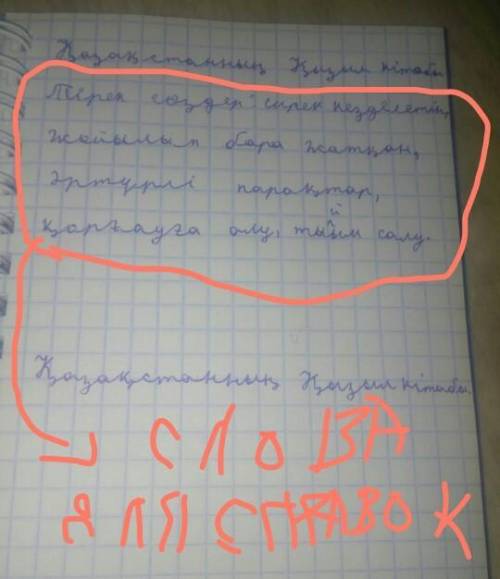 Қазақстанның Қызыл кітабы
Тірек сөздер: сирек кездесетін,
жойылып бара жатқан,
әртүрлі парақтар,
қорғауға алу, тыйым салу.
Қазақстанның Қызыл кітабы.
СЛОВА
ДЛЯ СПРАВОК